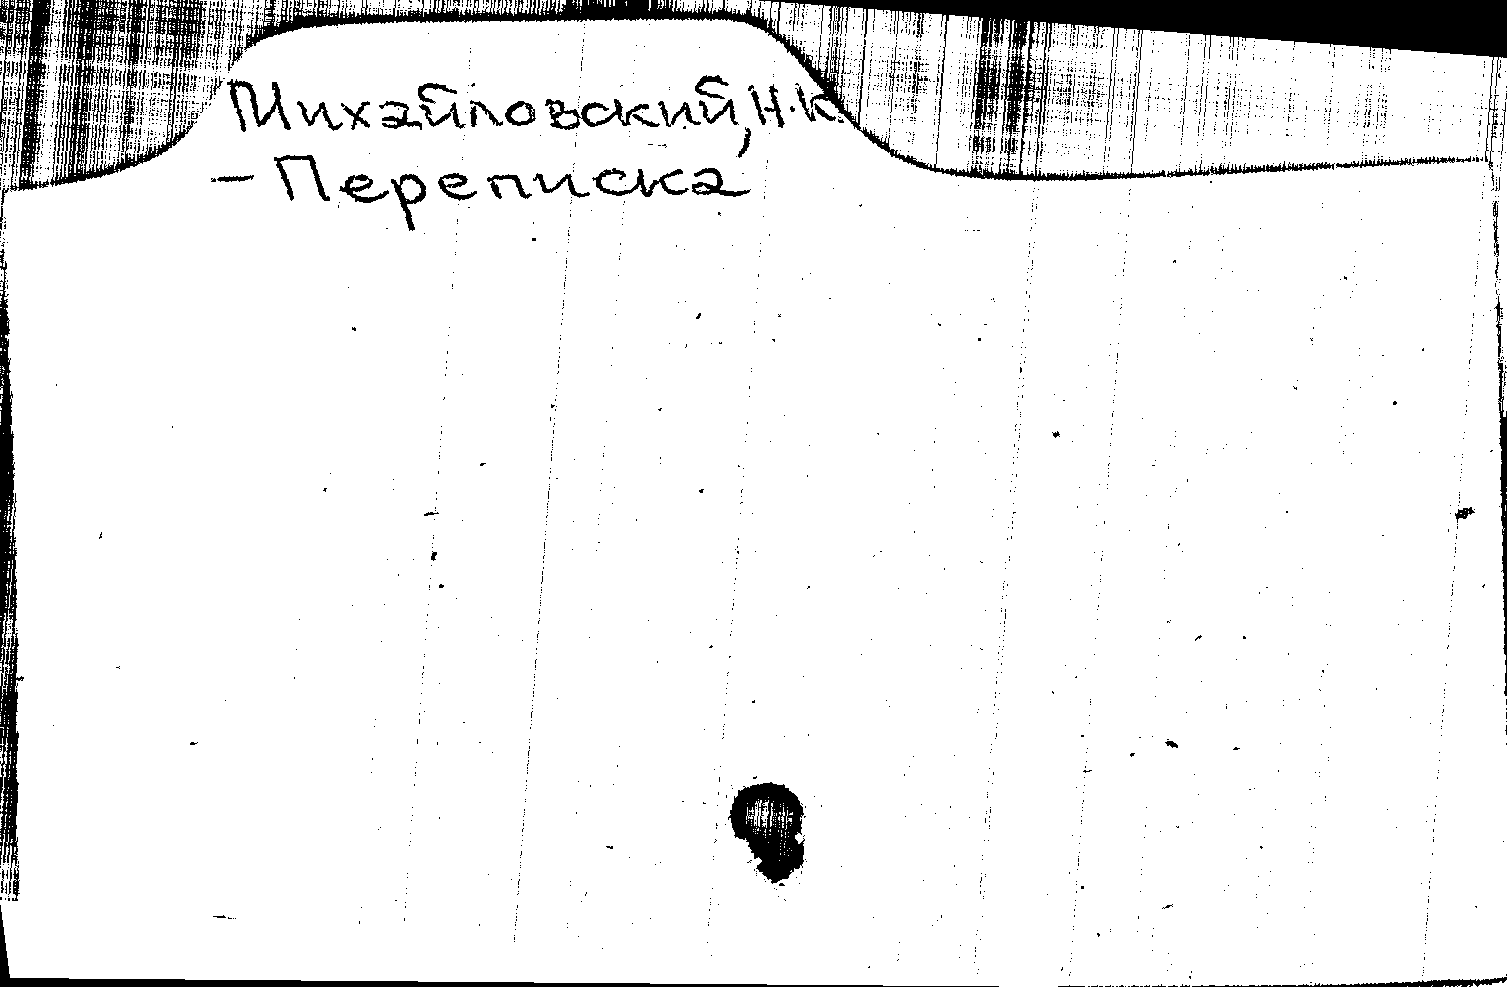 Михайловский, Н.К.
- Переписка